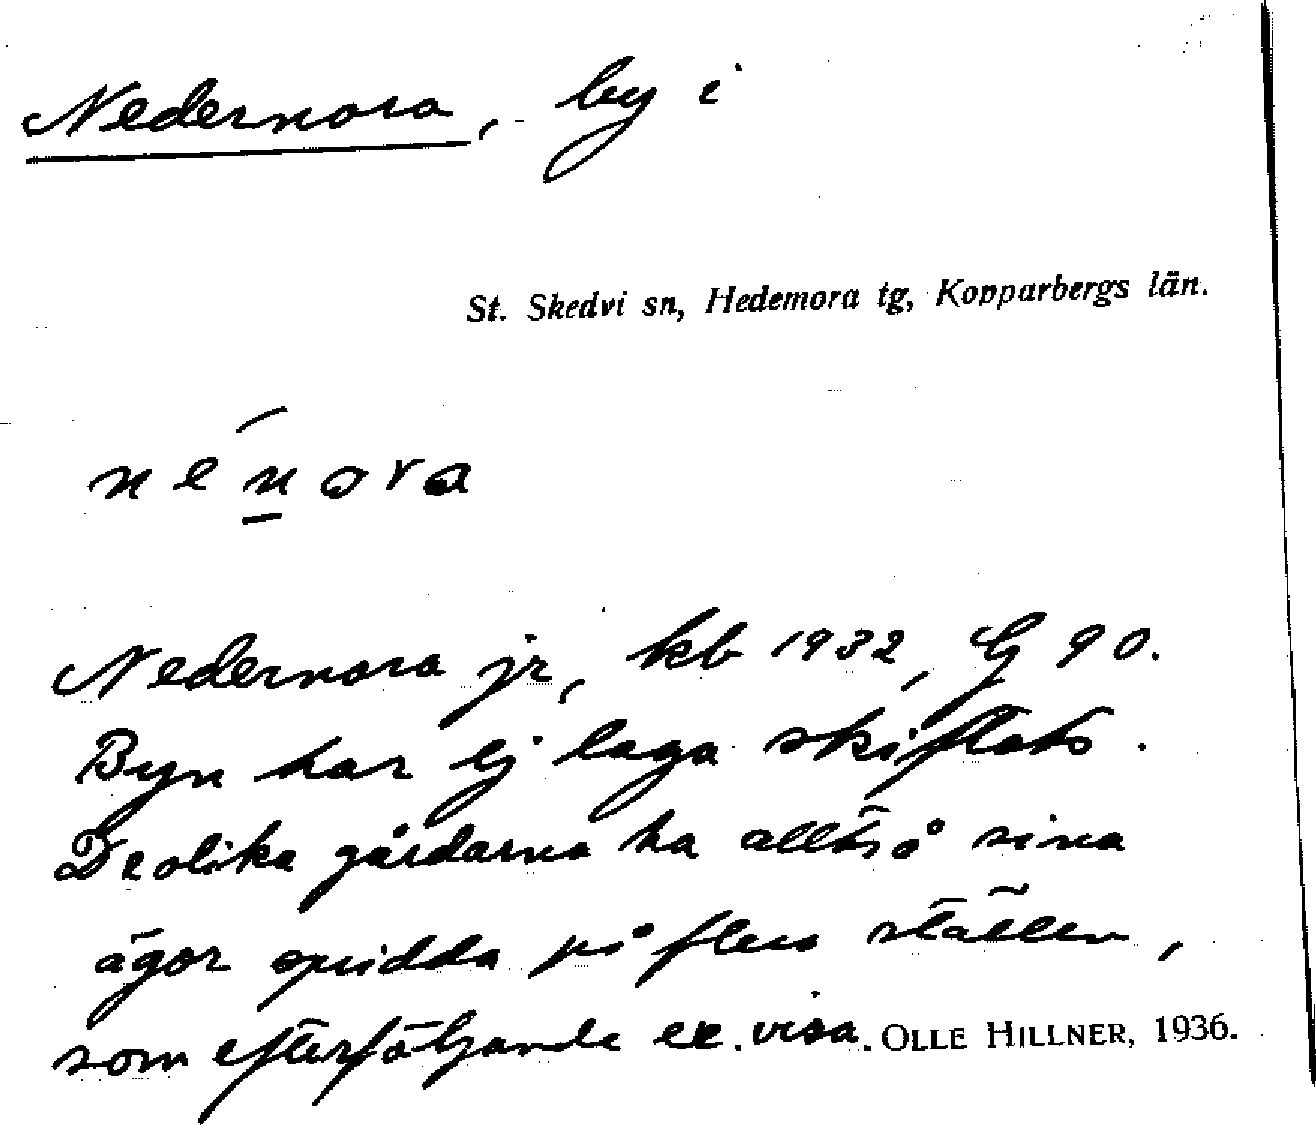 Nedernora, by i
St. Skedvi sn, Hedemora tg, Kopparbergs län.
nénora
Nedernora jr, kb 1932, G 90.
Byn har ej laga skiftats.
De olika gårdarna ha alltså sina
ägor spridda på flera ställen,
som efterföljande ex. visa. OLLE HILLNER, 1936.